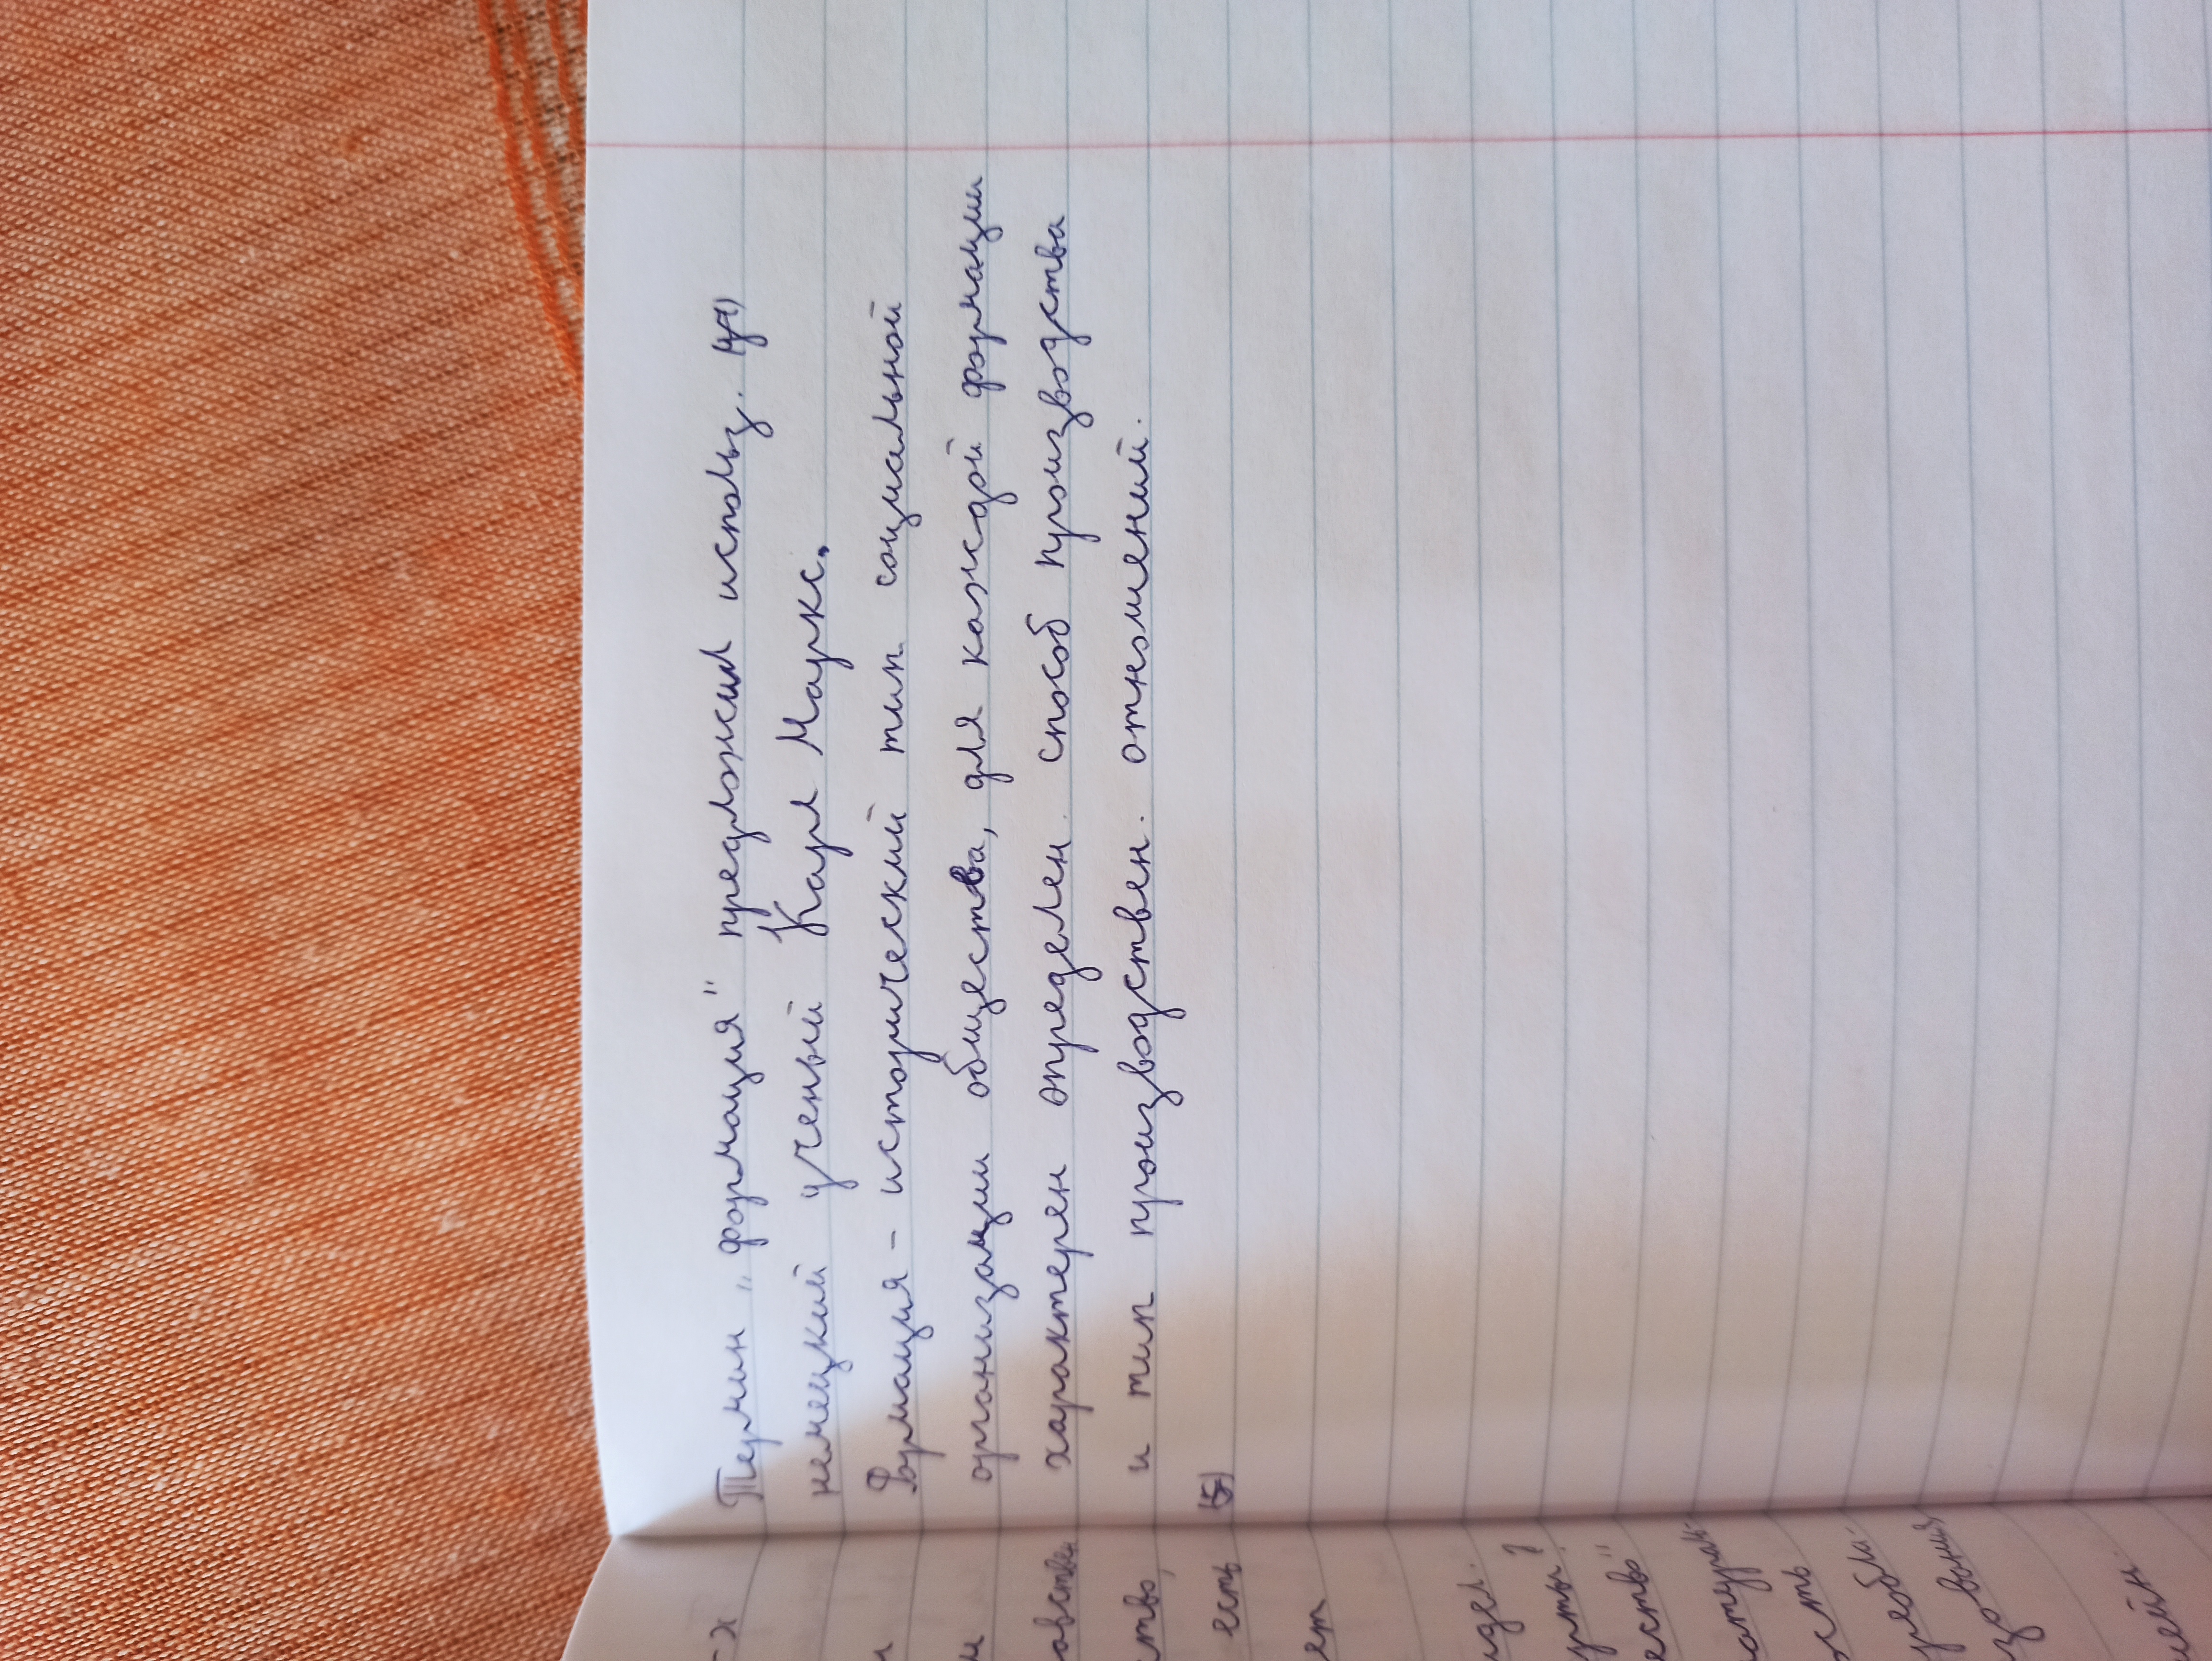 Термин „формация" предложил использ.
немецкий ученый Карл Маркс.
Формация – исторический тип социальной
организации общества, для каждой формации
характерен определен. способ производства
и тип производствен. отношений.
5)
-х
и
м
овствен
ство,
есть
ет
идел.
урты?
ество"
натураль-
ость
уребла-
зования,
шейн.